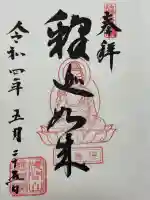 奉拝
釈迦如来
令和四年五月二十五日